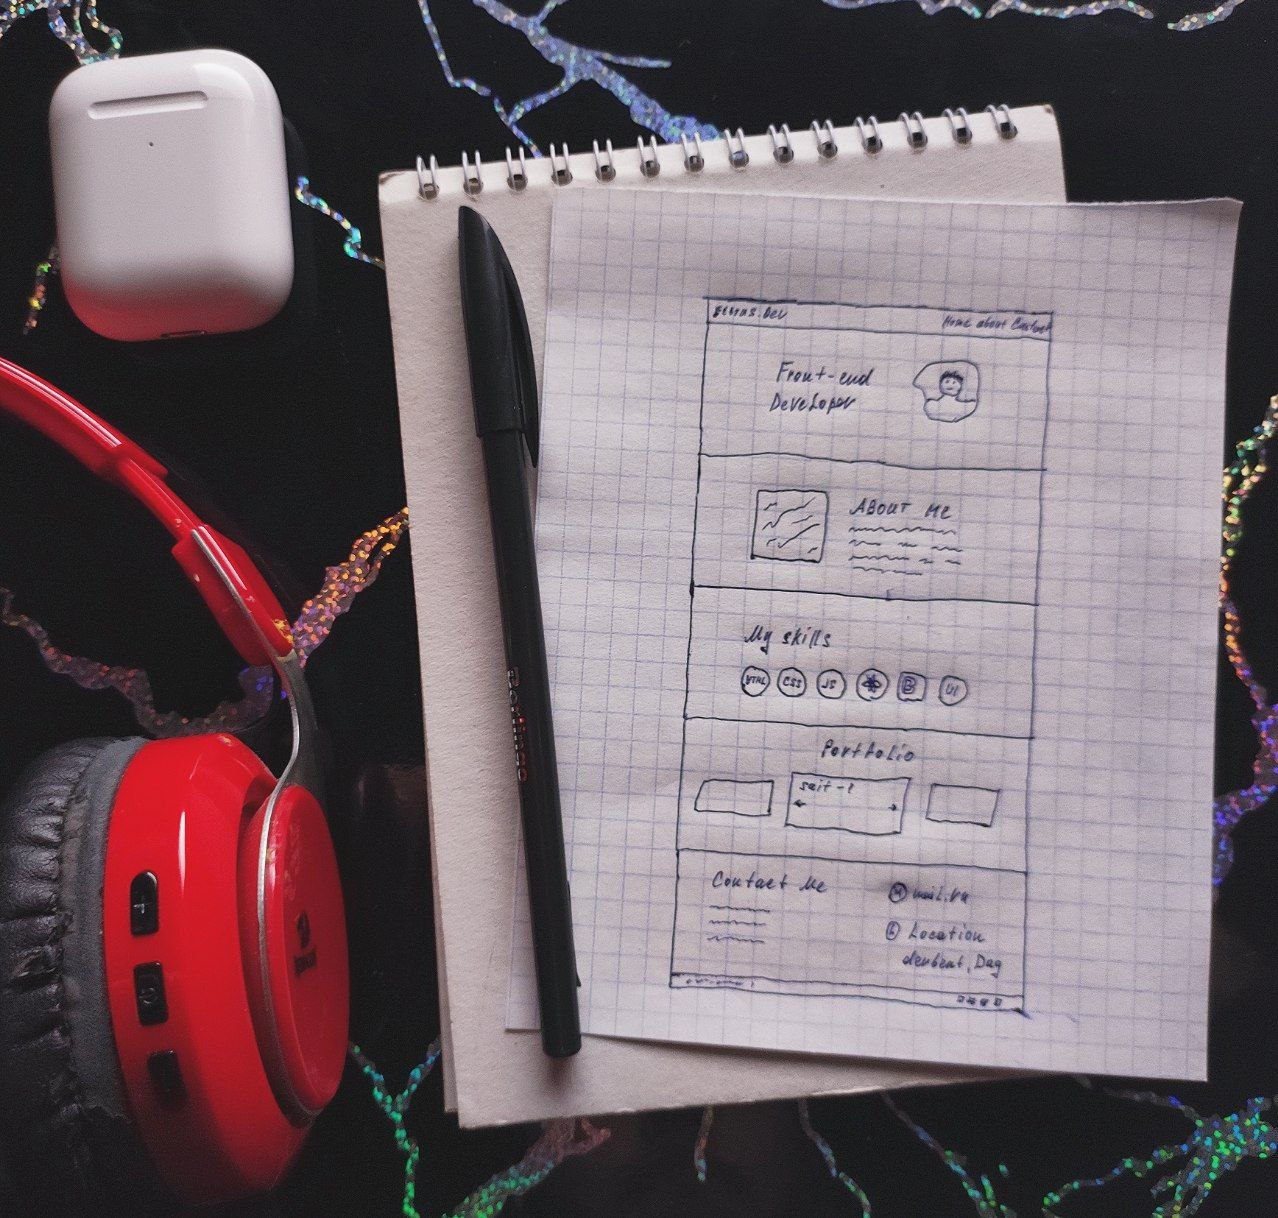 Home about Contact
Front-end
Developer
ABOUT ME
My skills
HTML CSS JS B UI
Portfolio
sait-1
Contact Me
mail.ru
Location
derbent, Dag